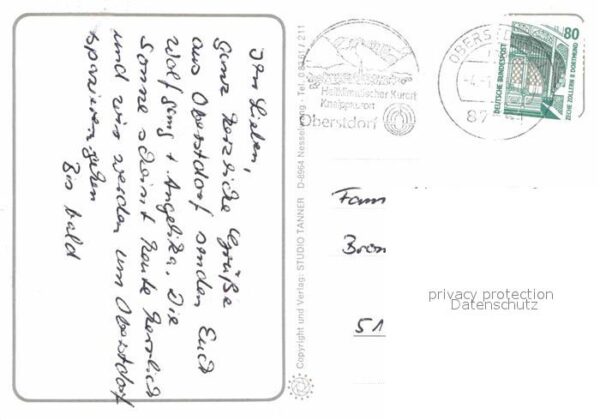 Ihr Lieben,
ganz herzliche Grüße
aus Oberstdorf senden Euch
Wolfgang + Angelika. Die
Sonne scheint heute herrlich
und wir werden um Oberstdorf
spazieren gehen
Bis bald
Copyright und Verlag: STUDIO TANNER D-8964 Nesselwang - Tel. 08361 / 211
Heilklimatischer Kurort
Kneippkurort
Oberstdorf
OBERST
87
80
DEUTSCHE BUNDESPOST
ZECHE ZOLLERN II DORTMUND
Fam
51
privacy protection
Datenschutz